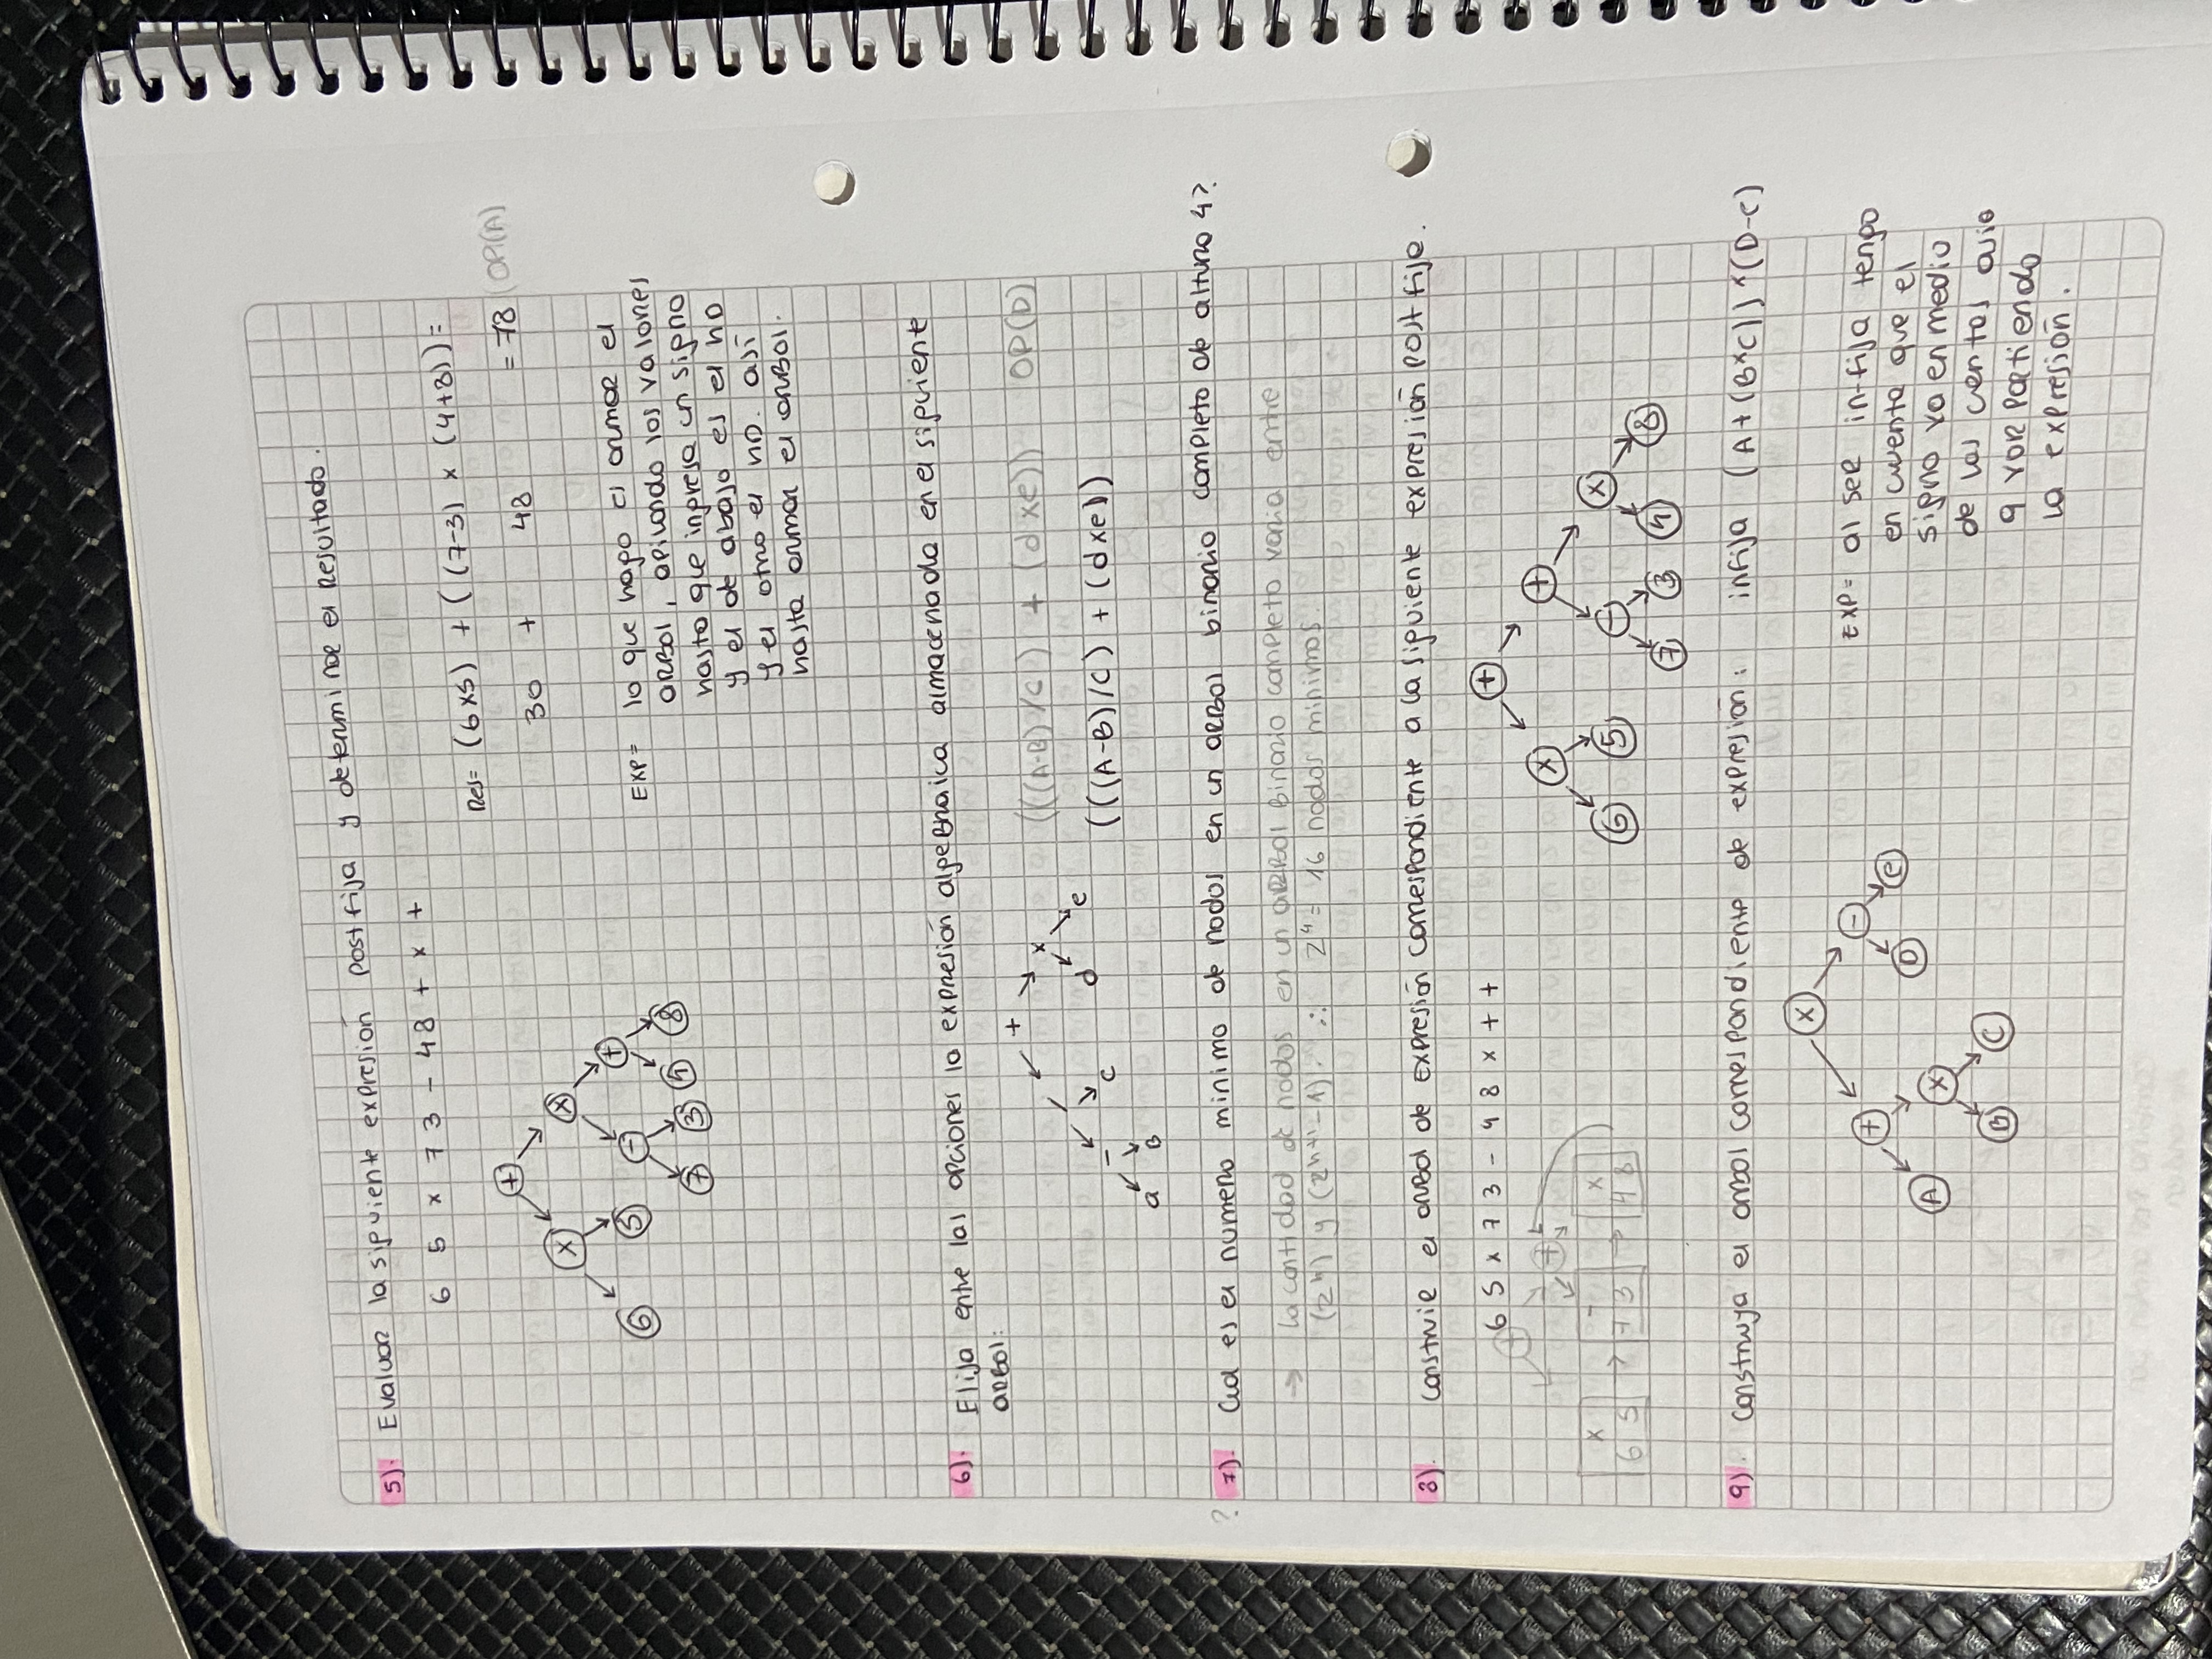 5). Evaluar la siguiente expresión postfija y determinar el resultado.
6 5 x 7 3 - 4 8 + x +
Res= (6x5) + ((7-3) x (4+8)) =
30 + 48 = 78 (OP(A)
+
x x
6 5 - +
7 3 4 8
EXP= lo que hago es armar el
arbol, apilando los valores
hasta que ingresa un signo
y el de abajo es el HD
y el otro el HD. así
hasta armar el arbol.
6). Elija entre las opciones la expresión algebraica almacenada en el siguiente
arbol:
+
/ x
- c d e
a B
(((A-B)/C) + (dxe)) OP(D)
(((A-B)/C) + (dxe))
? 7). Cual es el numero minimo de nodos en un arbol binario completo de altura 4?
→ La cantidad de nodos en un arbol Binario completo varia entre
(2ⁿ) y (2ⁿ⁺¹-1). ∴ 2⁴ = 16 nodos minimos.
8). construie el arbol de expresión correspondiente a la siguiente expresión postfija.
6 5 x 7 3 - 4 8 x + +
+
+
x - x
6 5 → 7 3 → 4 8
+
x +
6 5 - x
7 3 4 8
9). construya el arbol correspondiente de expresion: infija (A+(B*C))*(D-C)
x
+ -
A x D e
B C
EXP= al ser infija tengo
en cuenta que el
signo va en medio
de las
partiendo
la expresión.